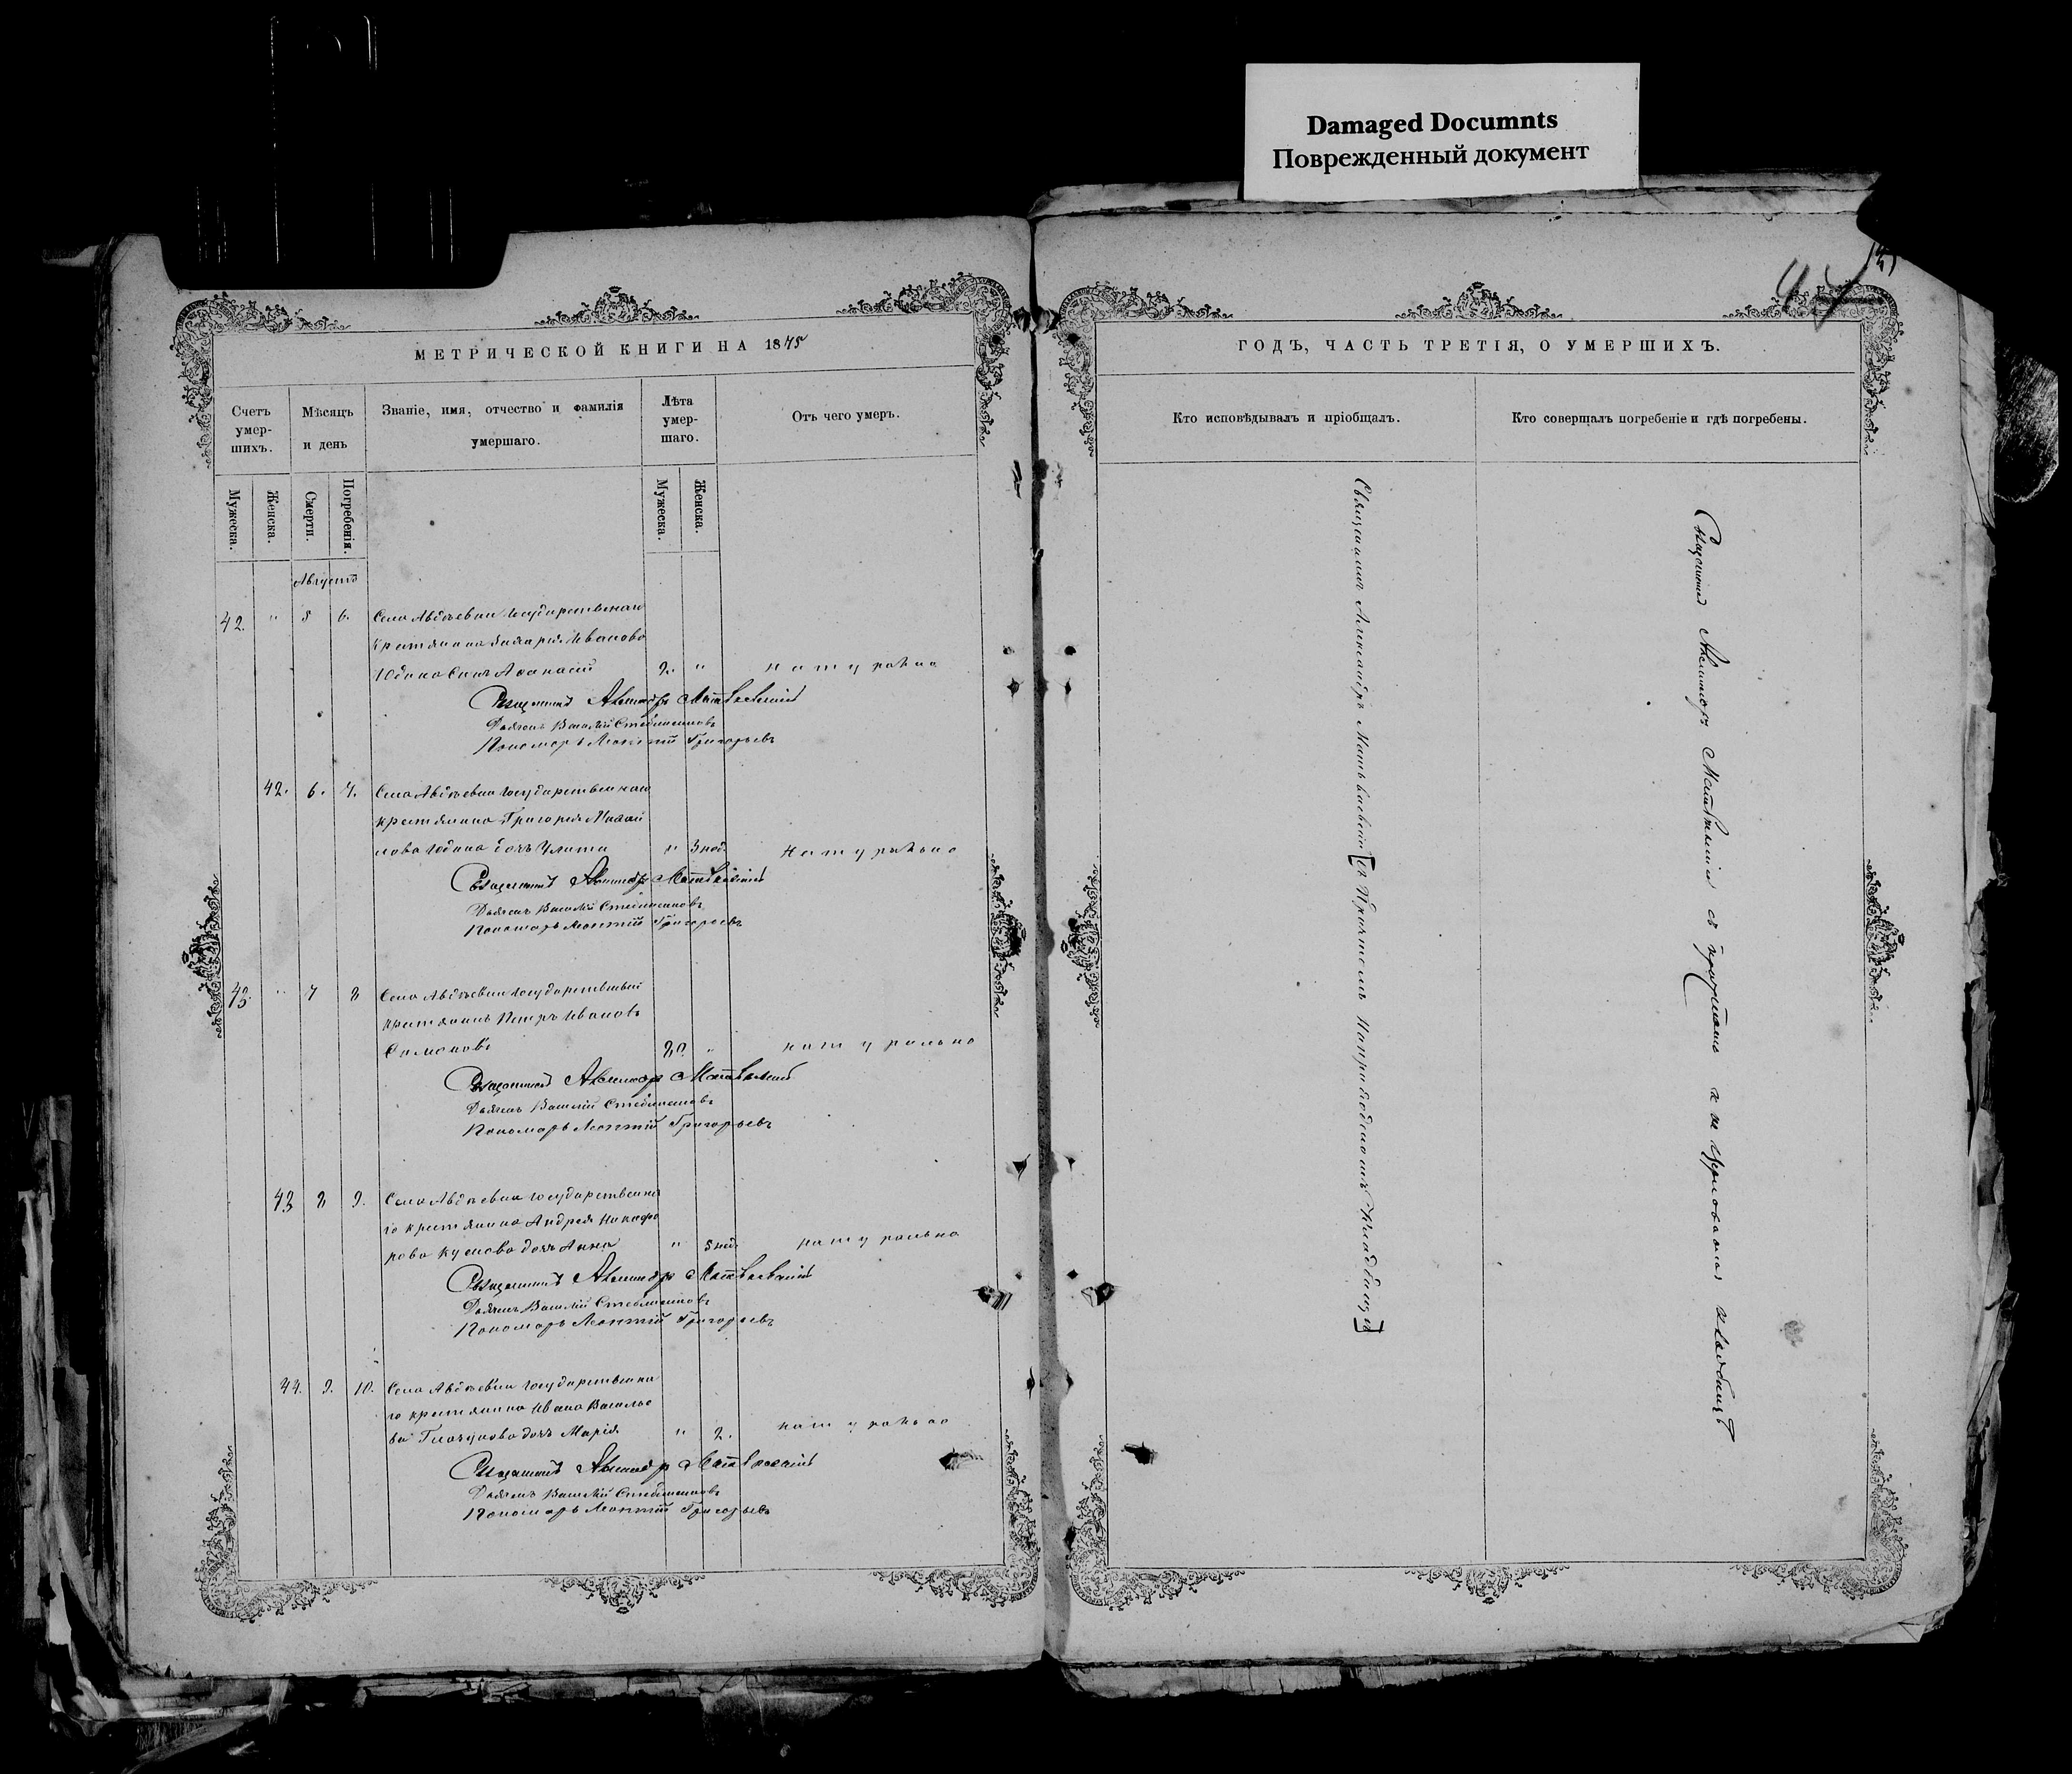 Damaged Documnts
Поврежденный документ
МЕТРИЧЕСКОЙ КНИГИ НА 1875
Счетъ умер-шихъ.
Мѣсяцъ и день
Званіе, имя, отчество и фамилія умершаго.
Лѣта умер-шаго.
Отъ чего умеръ.
Мужеска.
Женска.
Смерти.
Погребенія.
Мужеска.
Женска.
Августъ
42. " 5 6. Села Авдѣевки государственнаго
крестьянина Захарія Иванова
Юдина сынъ Афанасій 2. " натурально
Священникъ Александръ Матвѣевскій
Дьячекъ Василій
Пономарь Леонтій Григорьевъ
42. 6. 7. Села Авдѣевки государственнаго
крестьянина Григорія Михай
лова Юдина дочь Улита " 3 нед. натурально
Священникъ Александръ Матвѣевскій
Дьячекъ Василій
Пономарь Леонтій Григорьевъ
43. " 7 8 Села Авдѣевки государственный
крестьянинъ Петръ Ивановъ
80. " натурально
Священникъ Александръ Матвѣевскій
Дьячекъ Василій
Пономарь Леонтій Григорьевъ
43 8 9. Села Авдѣевки государственна
го крестьянина Андрея Никифо
рова дочь Анна " 5 нед. натурально
Священникъ Александръ Матвѣевскій
Дьячекъ Василій
Пономарь Леонтій Григорьевъ
44. 9. 10. Села Авдѣевки государственна
го крестьянина Ивана Василье
ва дочь Марія " 2. натурально
Священникъ Александръ Матвѣевскій
Дьячекъ Василій
Пономарь Леонтій Григорьевъ
ГОДЪ, ЧАСТЬ ТРЕТІЯ, О УМЕРШИХЪ.
Кто исповѣдывалъ и пріобщалъ.
Кто совершалъ погребеніе и гдѣ погребены.
Священникъ Александръ Матвѣевскій
Священникъ Александръ Матвѣевскій съ причтомъ на кладбищѣ